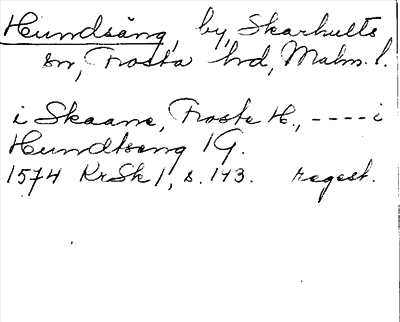 Hundsäng, by, Skarhults
sn, Frosta hd, Malm. l.
i Skaane, Froste H., ---- i
Hundtseng 1 G.
1574 KrSk 1, s. 143. regest.